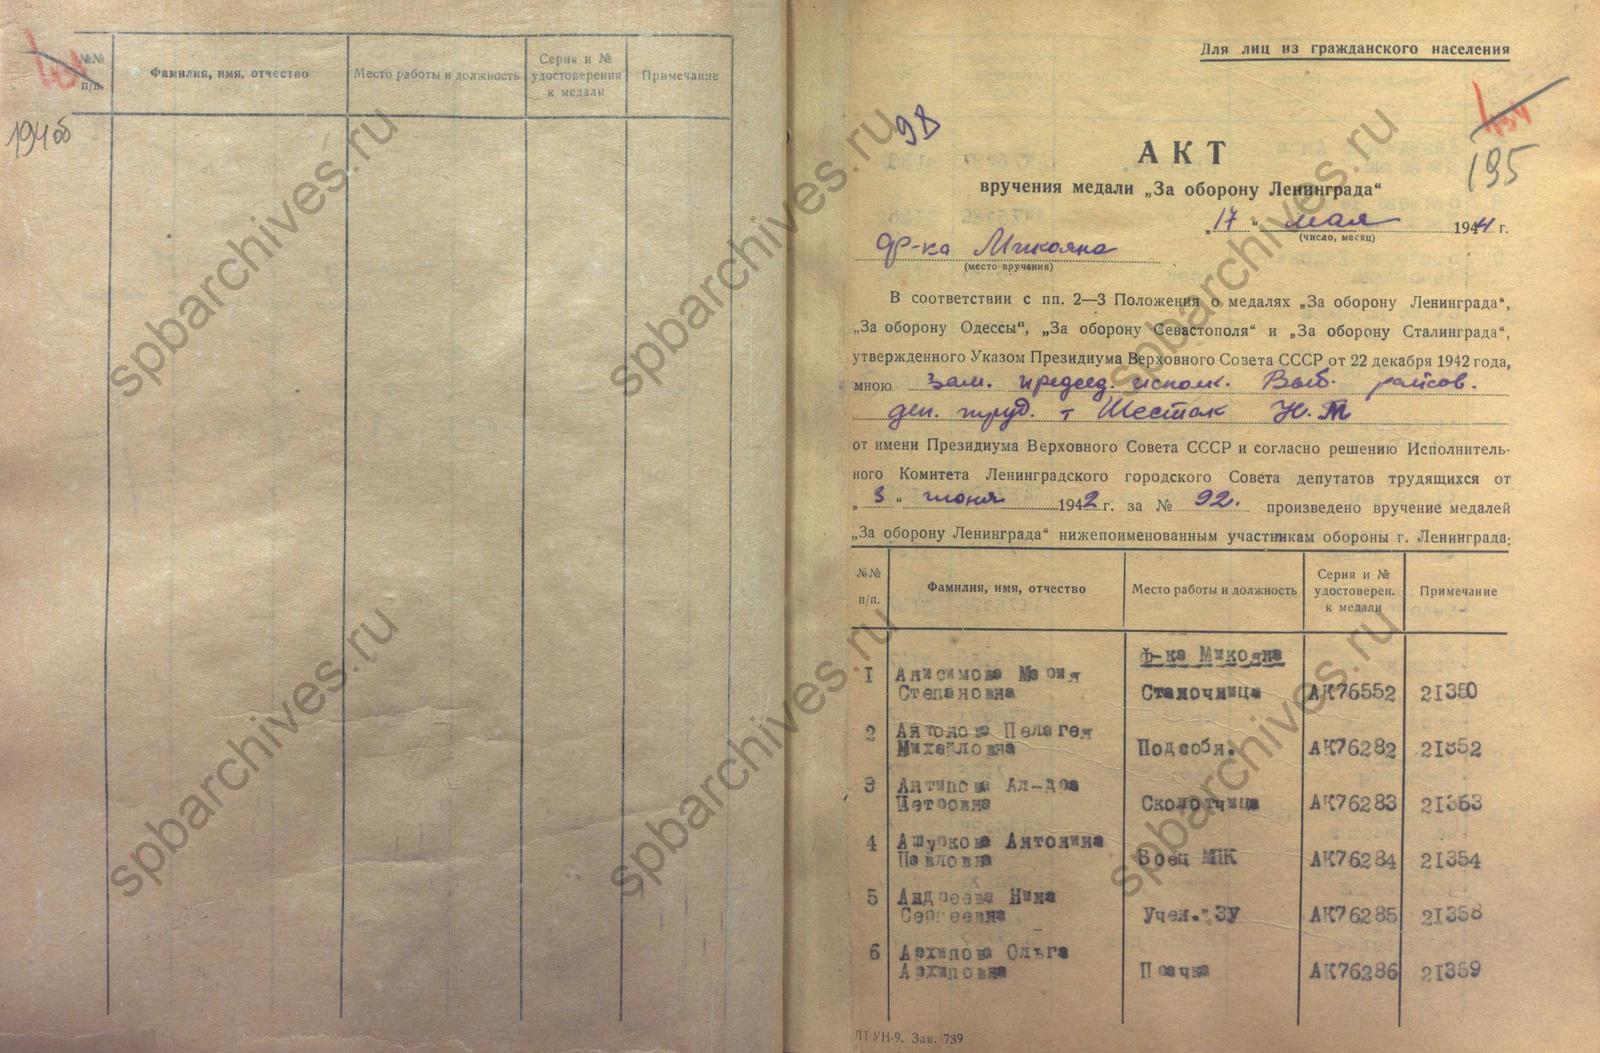 №№
п/п.
Фамилия, имя, отчество
Место работы и должность
Серия и №
удостоверения
к медали
Примечание
194об
Для лиц из гражданского населения
98
195
АКТ
вручения медали „За оборону Ленинграда“
„17“ мая 1944 г.
(число, месяц)
Ф-ка Микояна
(место вручения)
В соответствии с пп. 2—3 Положения о медалях „За оборону Ленинграда“,
„За оборону Одессы“, „За оборону Севастополя“ и „За оборону Сталинграда“,
утвержденного Указом Президиума Верховного Совета СССР от 22 декабря 1942 года,
мною зам. председ. исполк. Выб. райсов.
деп. труд. т Шестак Н. М
от имени Президиума Верховного Совета СССР и согласно решению Исполнитель-
ного Комитета Ленинградского городского Совета депутатов трудящихся от
„3“ июня 1942 г. за № 92. произведено вручение медалей
„За оборону Ленинграда“ нижепоименованным участникам обороны г. Ленинграда:
№№
п/п.
Фамилия, имя, отчество
Место работы и должность
Серия и №
удостоверен.
к медали
Примечание
Ф-ка Микояна
1 Анисимова Мария
Степановна Станочница АК76552 21350
2 Антонова Пелагея
Михайловна Подсобн. АК76282 21352
3 Антипова Ал-дра
Петровна Сколотчица АК76283 21353
4 Ашуркова Антонина
Павловна Боец МПК АК76284 21354
5 Андреева Нина
Сергеевна Учен. ЗУ АК76285 21358
6 Архипова Ольга
Архиповна Прачка АК76286 21359
ЛТУН-9. Зак. 739
spbarchives.ru
spbarchives.ru
spbarchives.ru
spbarchives.ru
spbarchives.ru
spbarchives.ru